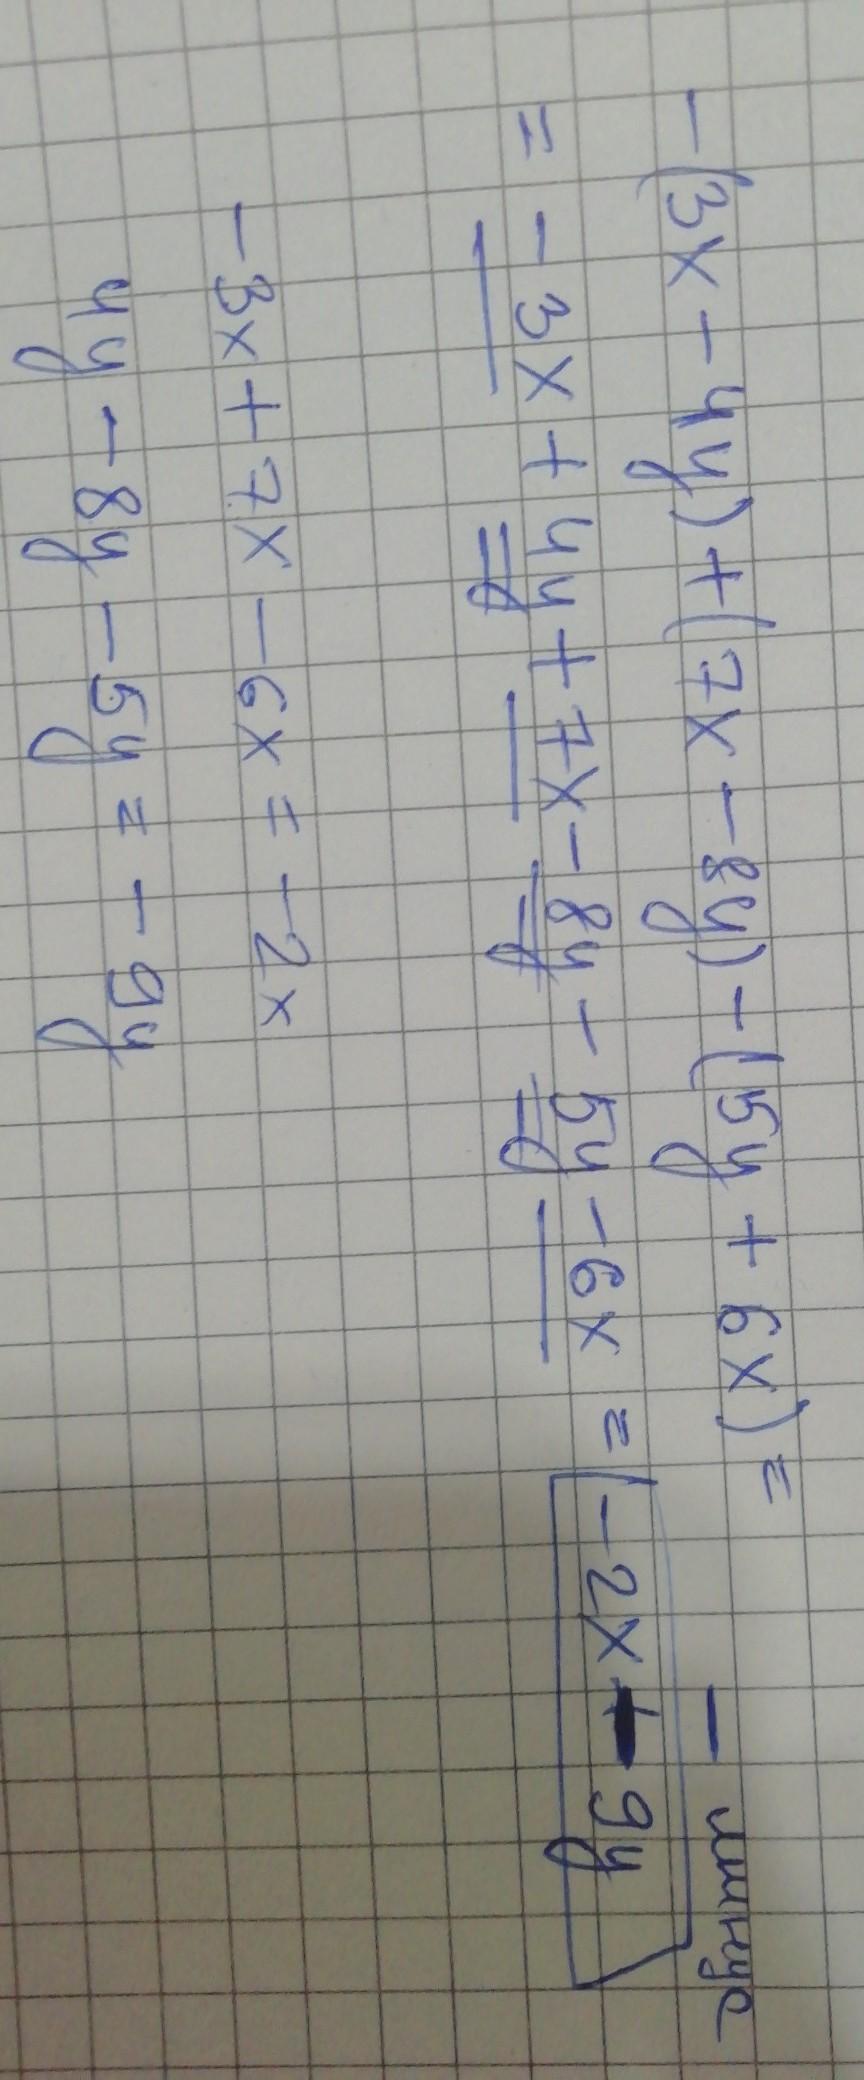 -(3x-4y)+(7x-8y)-(5y+6x)=
- минус
=-3x+4y+7x-8y-5y-6x=-2x-9y
-3x+7x-6x=-2x
4y-8y-5y=-9y